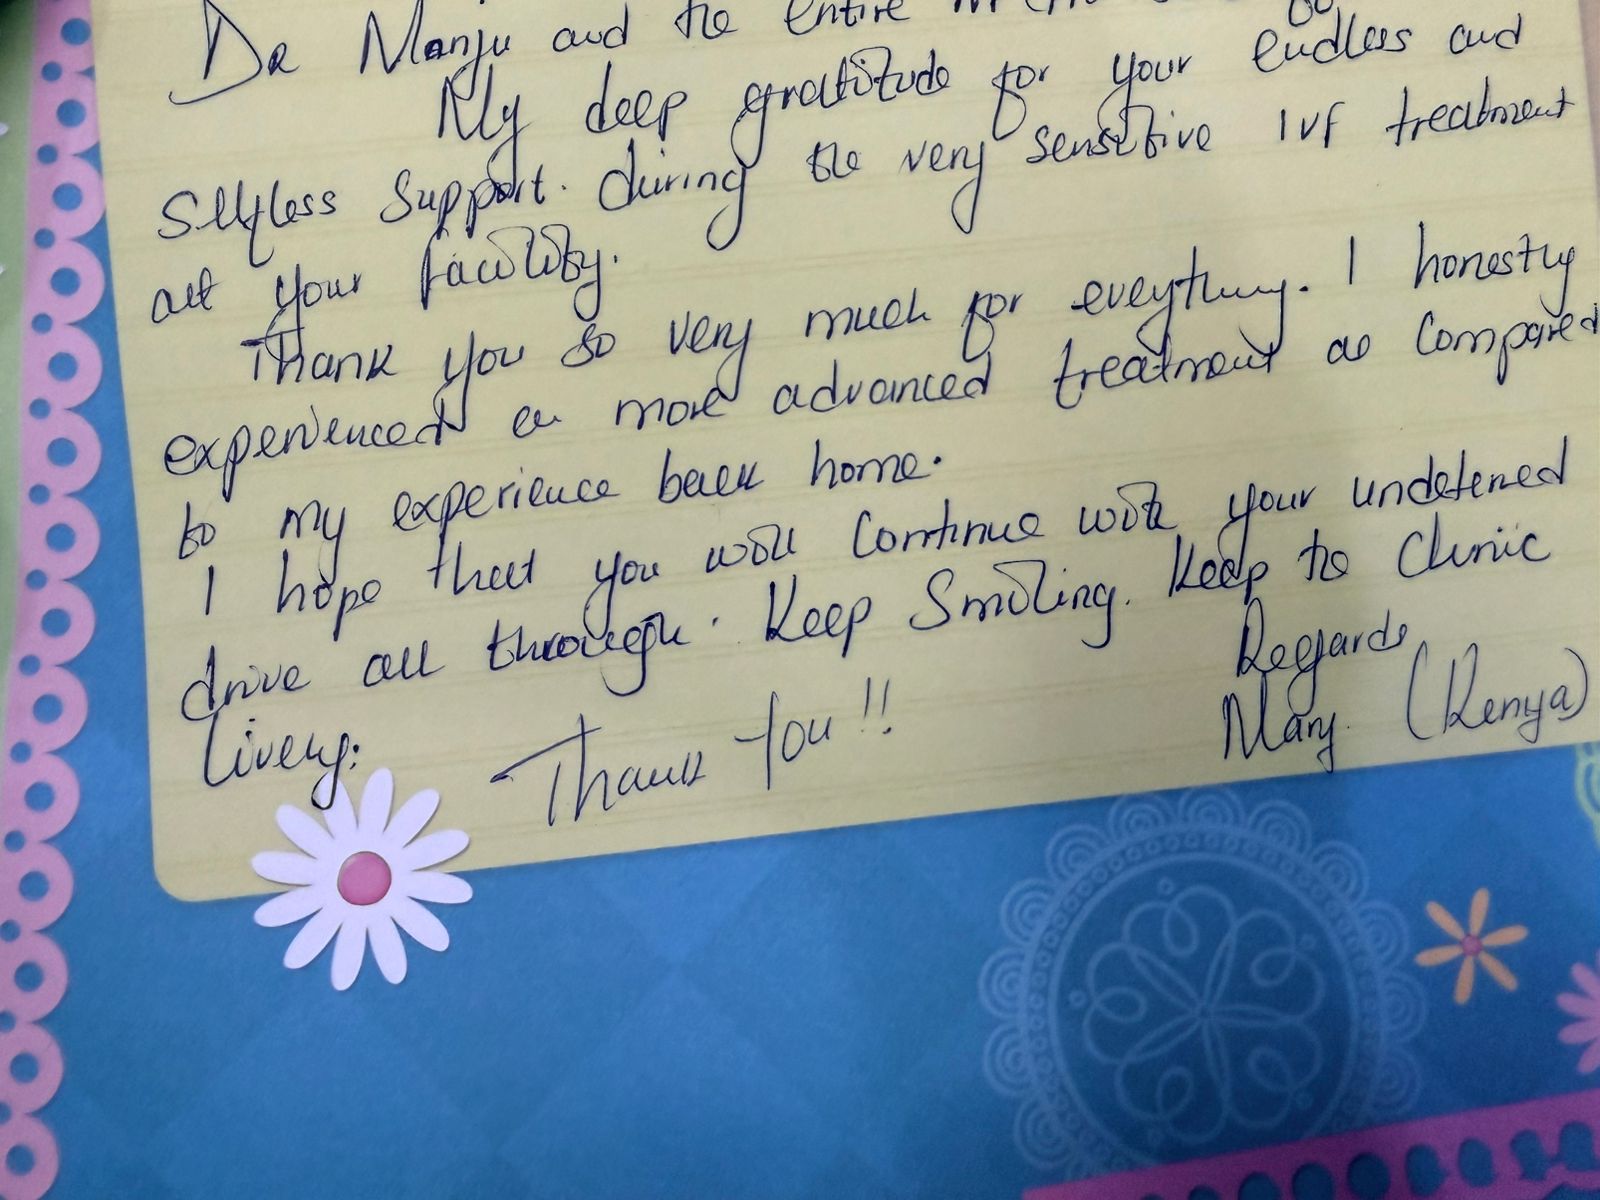 Dr Manju and the entire
My deep gratitude for your endless and
selfless support. during the very sensitive IVF treatment
at your facility.
Thank you so very much for eveything. I honestly
experienced a more advanced treatment as compared
to my experience back home.
I hope that you will continue with your undeterred
drive all through. Keep Smiling. Keep the Clinic
Lively.
Thank You!!
Regards
Mary. (Kenya)